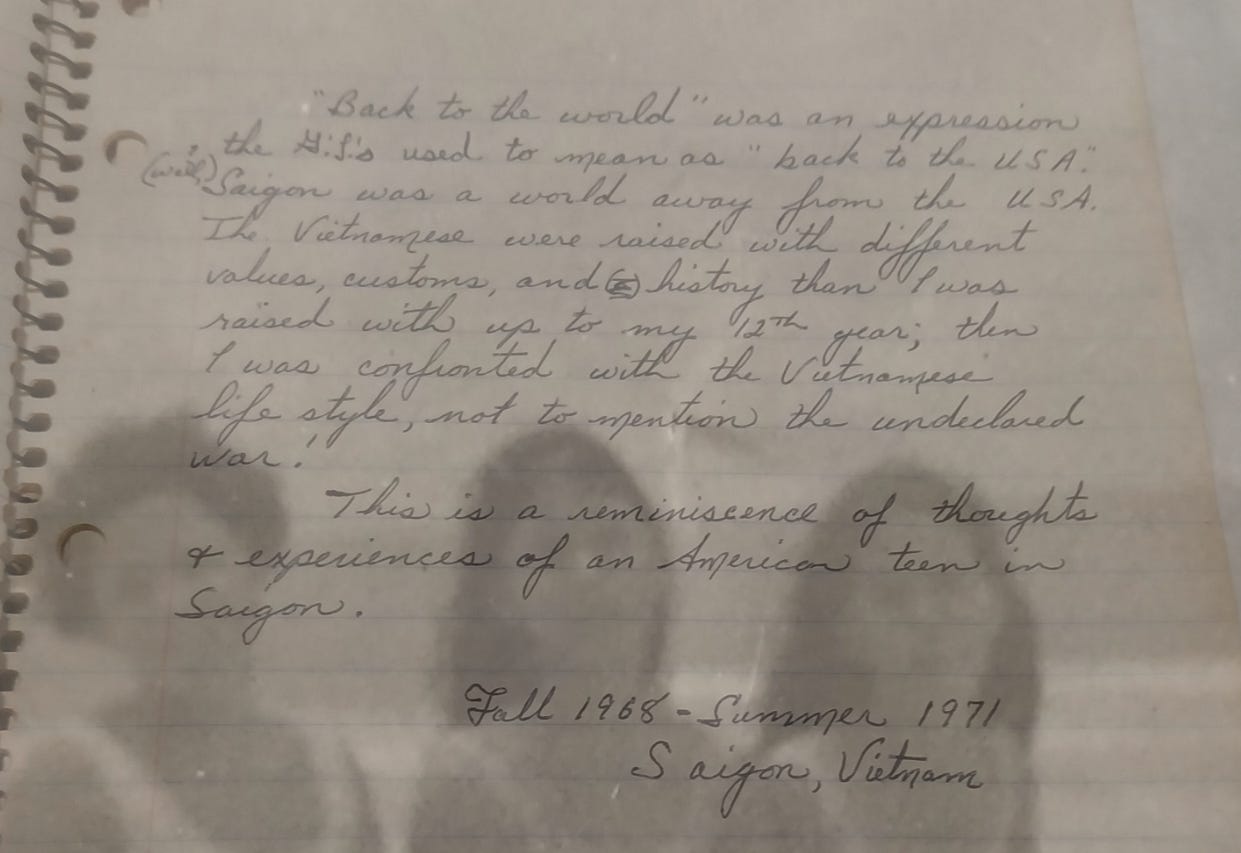 "Back to the world" was an expression
the G.I.'s used to mean as "back to the USA."
(well,) Saigon was a world away from the USA.
The Vietnamese were raised with different
values, customs, and history than I was
raised with up to my 12th year; then
I was confronted with the Vietnamese
life style, not to mention the undeclared
war!
This is a reminiscence of thoughts
& experiences of an American teen in
Saigon.
Fall 1968 - Summer 1971
Saigon, Vietnam